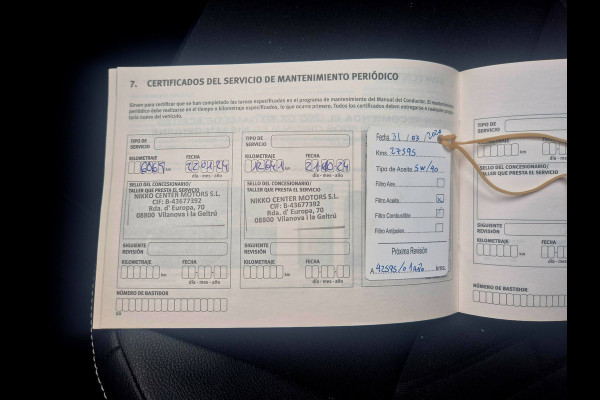 7. CERTIFICADOS DEL SERVICIO DE MANTENIMIENTO PERIÓDICO
Sirven para certificar que se han completado las tareas especificadas en el programa de mantenimiento del Manual del Conductor. El
periódico debe realizarse en el tiempo o kilometraje especificados, lo que ocurra primero. Todos los certificados deben entregarse a cualquier
toria nuevo del vehículo.
TIPO DE
SERVICIO
KILOMETRAJE FECHA
km
SELLO DEL CONCESIONARIO/
TALLER QUE PRESTA EL SERVICIO
NIKKO CENTER MOTORS S.L.
CIF: B-43677392
Rda. d' Europa, 70
08800 Vilanova i la Geltrú
SIGUIENTE
REVISIÓN
KILOMETRAJE FECHA
km
día - mes - año
NÚMERO DE BASTIDOR
TIPO DE
SERVICIO
KILOMETRAJE FECHA
km
SELLO DEL CONCESIONARIO/
TALLER QUE PRESTA EL SERVICIO
NIKKO CENTER MOTORS S.L.
CIF: B-43677392
Rda. d' Europa, 70
08800 Vilanova i la Geltrú
SIGUIENTE
REVISIÓN
KILOMETRAJE FECHA
km
día - mes - año
Fecha 31 / 03 /
Kms. 27595
Tipo de Aceite 5W/40
Filtro Aire
Filtro Aceite
Filtro Combustible
Filtro Antipolen
Próxima Revisión
A 42595 / o 1 año kms.
TIPO DE
SERVICIO
KILOMETRAJE
SELLO DEL CONCESIONARIO/
TALLER QUE PRESTA EL SERVICIO
SIGUIENTE
REVISIÓN
KILOMETRAJE FECHA
km
NÚMERO DE BASTIDOR